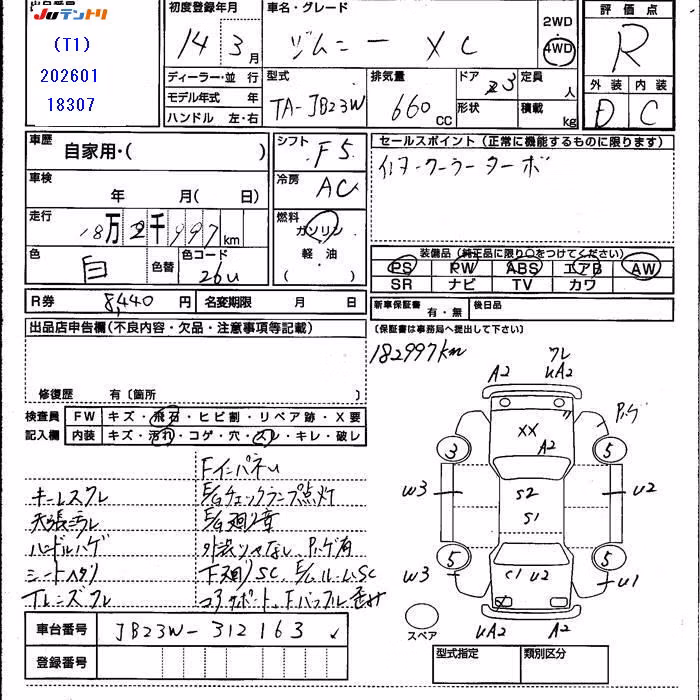 出品番号
JUテントリ
(T1)
202601
18307
初度登録年月
14年 3月
車名・グレード
ジムニー XC
2WD
4WD
評価点
R
外装 内装
D C
ディーラー・並行
モデル年式 年
ハンドル 左・右
型式
TA-JB23W
排気量
660 CC
ドア 3
形状
定員 人
積載 kg
車歴
自家用・( )
シフト F5
セールスポイント (正常に機能するものに限ります)
4ターター ターボ
車検
年 月( 日)
冷房 AC
走行
18万2千997km
燃料
ガソリン
軽油
( )
色 白 色替
色コード
26U
装備品(純正品に限り○をつけてください)
PS PW ABS エアB AW
SR ナビ TV カワ
R券 8,440円
名変期限 月 日
新車保証書 有・無
後日品
(保証書は事務局へ提出して下さい)
出品店申告欄(不良内容・欠品・注意事項等記載)
修復歴 有〔箇所 〕
182997km
検査員
記入欄
FW キズ・飛石・ヒビ割・リペア跡・X要
内装 キズ・汚れ・コゲ・穴・スレ・キレ・破レ
Fインパネル
キーレスクレ
E/Gチェックランプ点灯
天張ヨゴレ
ハンドルハゲ
外装ツヤなし、P、ハゲ有
シートヘタリ
下廻りSC、E/GルームSC
コアサポート、Fバッフル歪み
A2 ワレ
UA2
P、ハゲ
XX
A2
3 5
W3 U2
S2
S1
5 5
W3 U1
C1 U2
X
スペア
UA2 A2
車台番号 JB23W-312163
登録番号
型式指定 類別区分